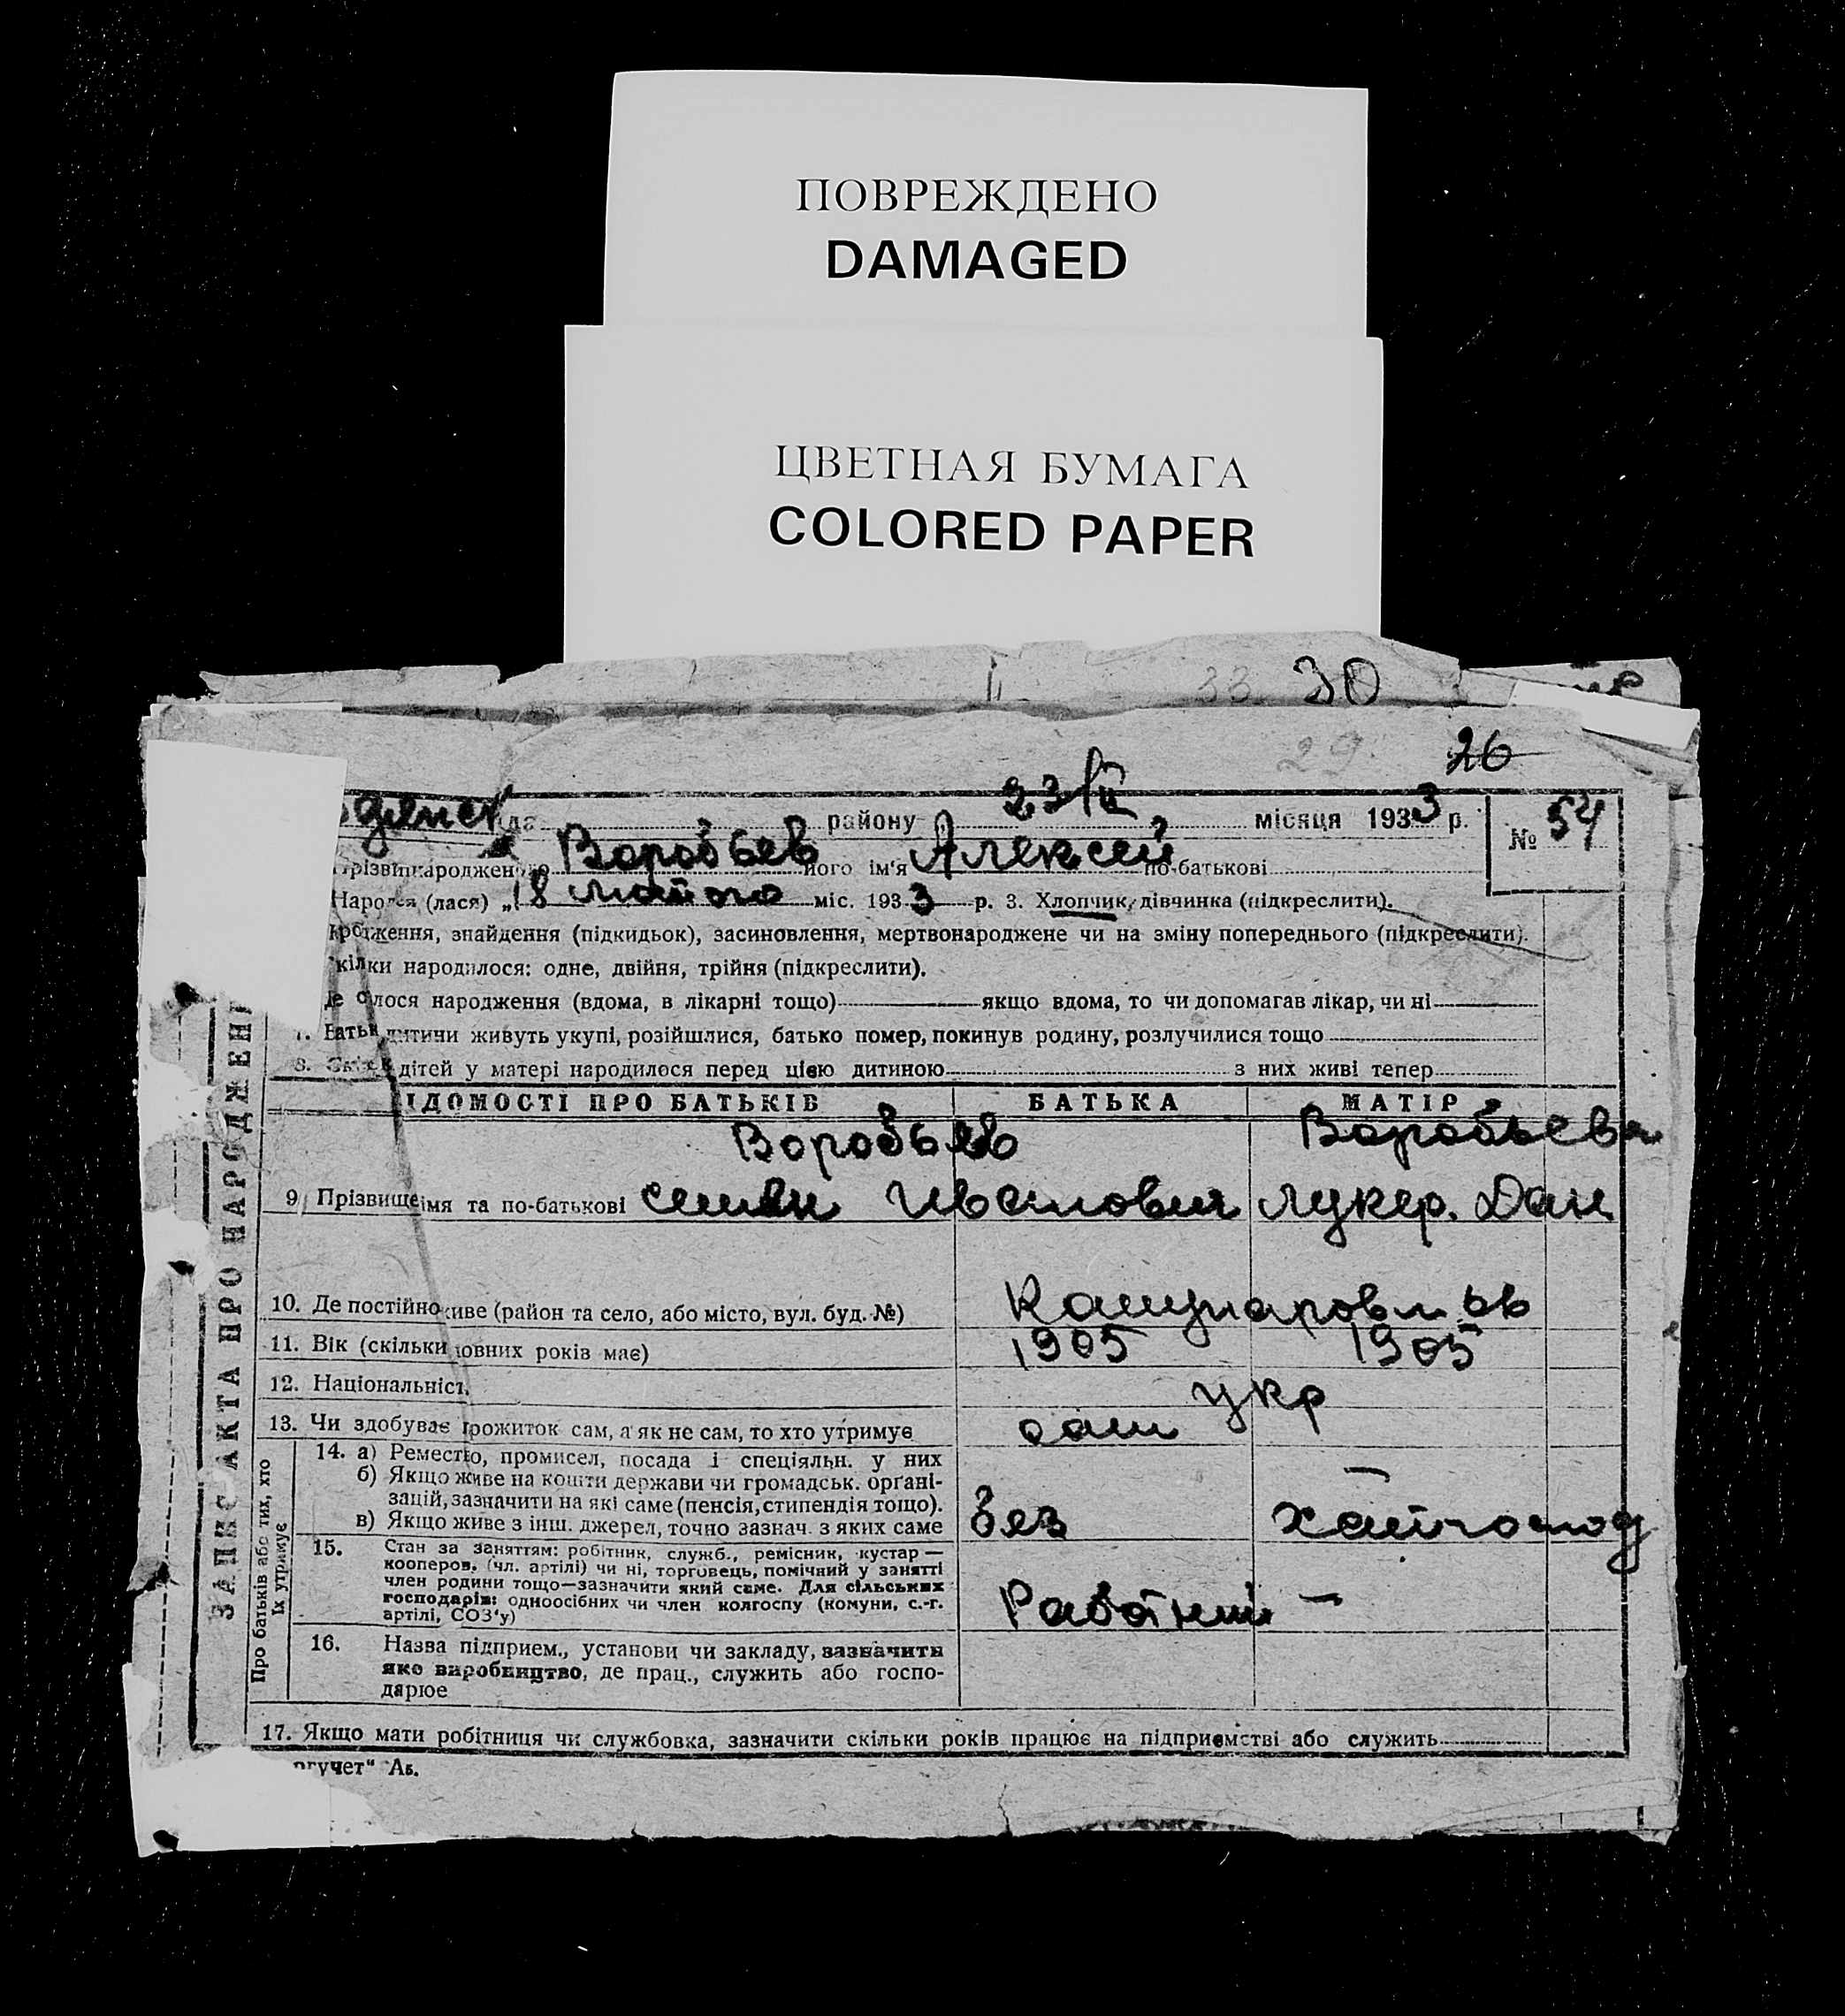 ПОВРЕЖДЕНО
DAMAGED
ЦВЕТНАЯ БУМАГА
COLORED PAPER
33 30
29 26
району 23/II місяця 1933 р. № 54
Воробьев його ім'я Алексей по-батькові
(лася) „18 лютого міс. 1933 р. 3. Хлопчик, дівчинка (підкреслити).
знайдення (підкидьок), засиновлення, мертвонароджене чи на зміну попереднього (підкреслити).
народилося: одне, двійня, трійня (підкреслити).
народження (вдома, в лікарні тощо) якщо вдома, то чи допомагав лікар, чи ні
дитини живуть укупі, розійшлися, батько помер, покинув родину, розлучилися тощо
8. дітей у матері народилося перед цією дитиною з них живі тепер
ІДОМОСТІ ПРО БАТЬКІВ БАТЬКА МАТІР
Воробьев Воробьева
9. Прізвище імя та по-батькові Семен Иванович Лукер. Дан
10. Де постійно живе (район та село, або місто, вул. буд. №)
11. Вік (скільки повних років має) 1905 1905
12. Національніст. укр
13. Чи здобуває прожиток сам, а як не сам, то хто утримує сам
14. а) Ремество, промисел, посада і спеціяльн. у них —
б) Якщо живе на кошти держави чи громадськ. орґані-
зацій, зазначити на які саме (пенсія, стипендія тощо).
в) Якщо живе з інш. джерел, точно зазнач. з яких саме без
15. Стан за заняттям: робітник, служб., ремісник, кустар—
кооперов. (чл. артілі) чи ні, торговець, помічний у занятті
член родини тощо—зазначити який саме. Для сільських
господарів: одноосібних чи член колгоспу (комуни, с.-г.
артілі, СОЗ'у) —
16. Назва підприєм., установи чи закладу, зазначити
яке виробництво, де прац., служить або госпо-
дарює
17. Якщо мати робітниця чи службовка, зазначити скільки років працює на підприємстві або служить
ЗАПИС АКТА ПРО НАРОДЖЕН
Про батьків або тих, хто
їх утримує